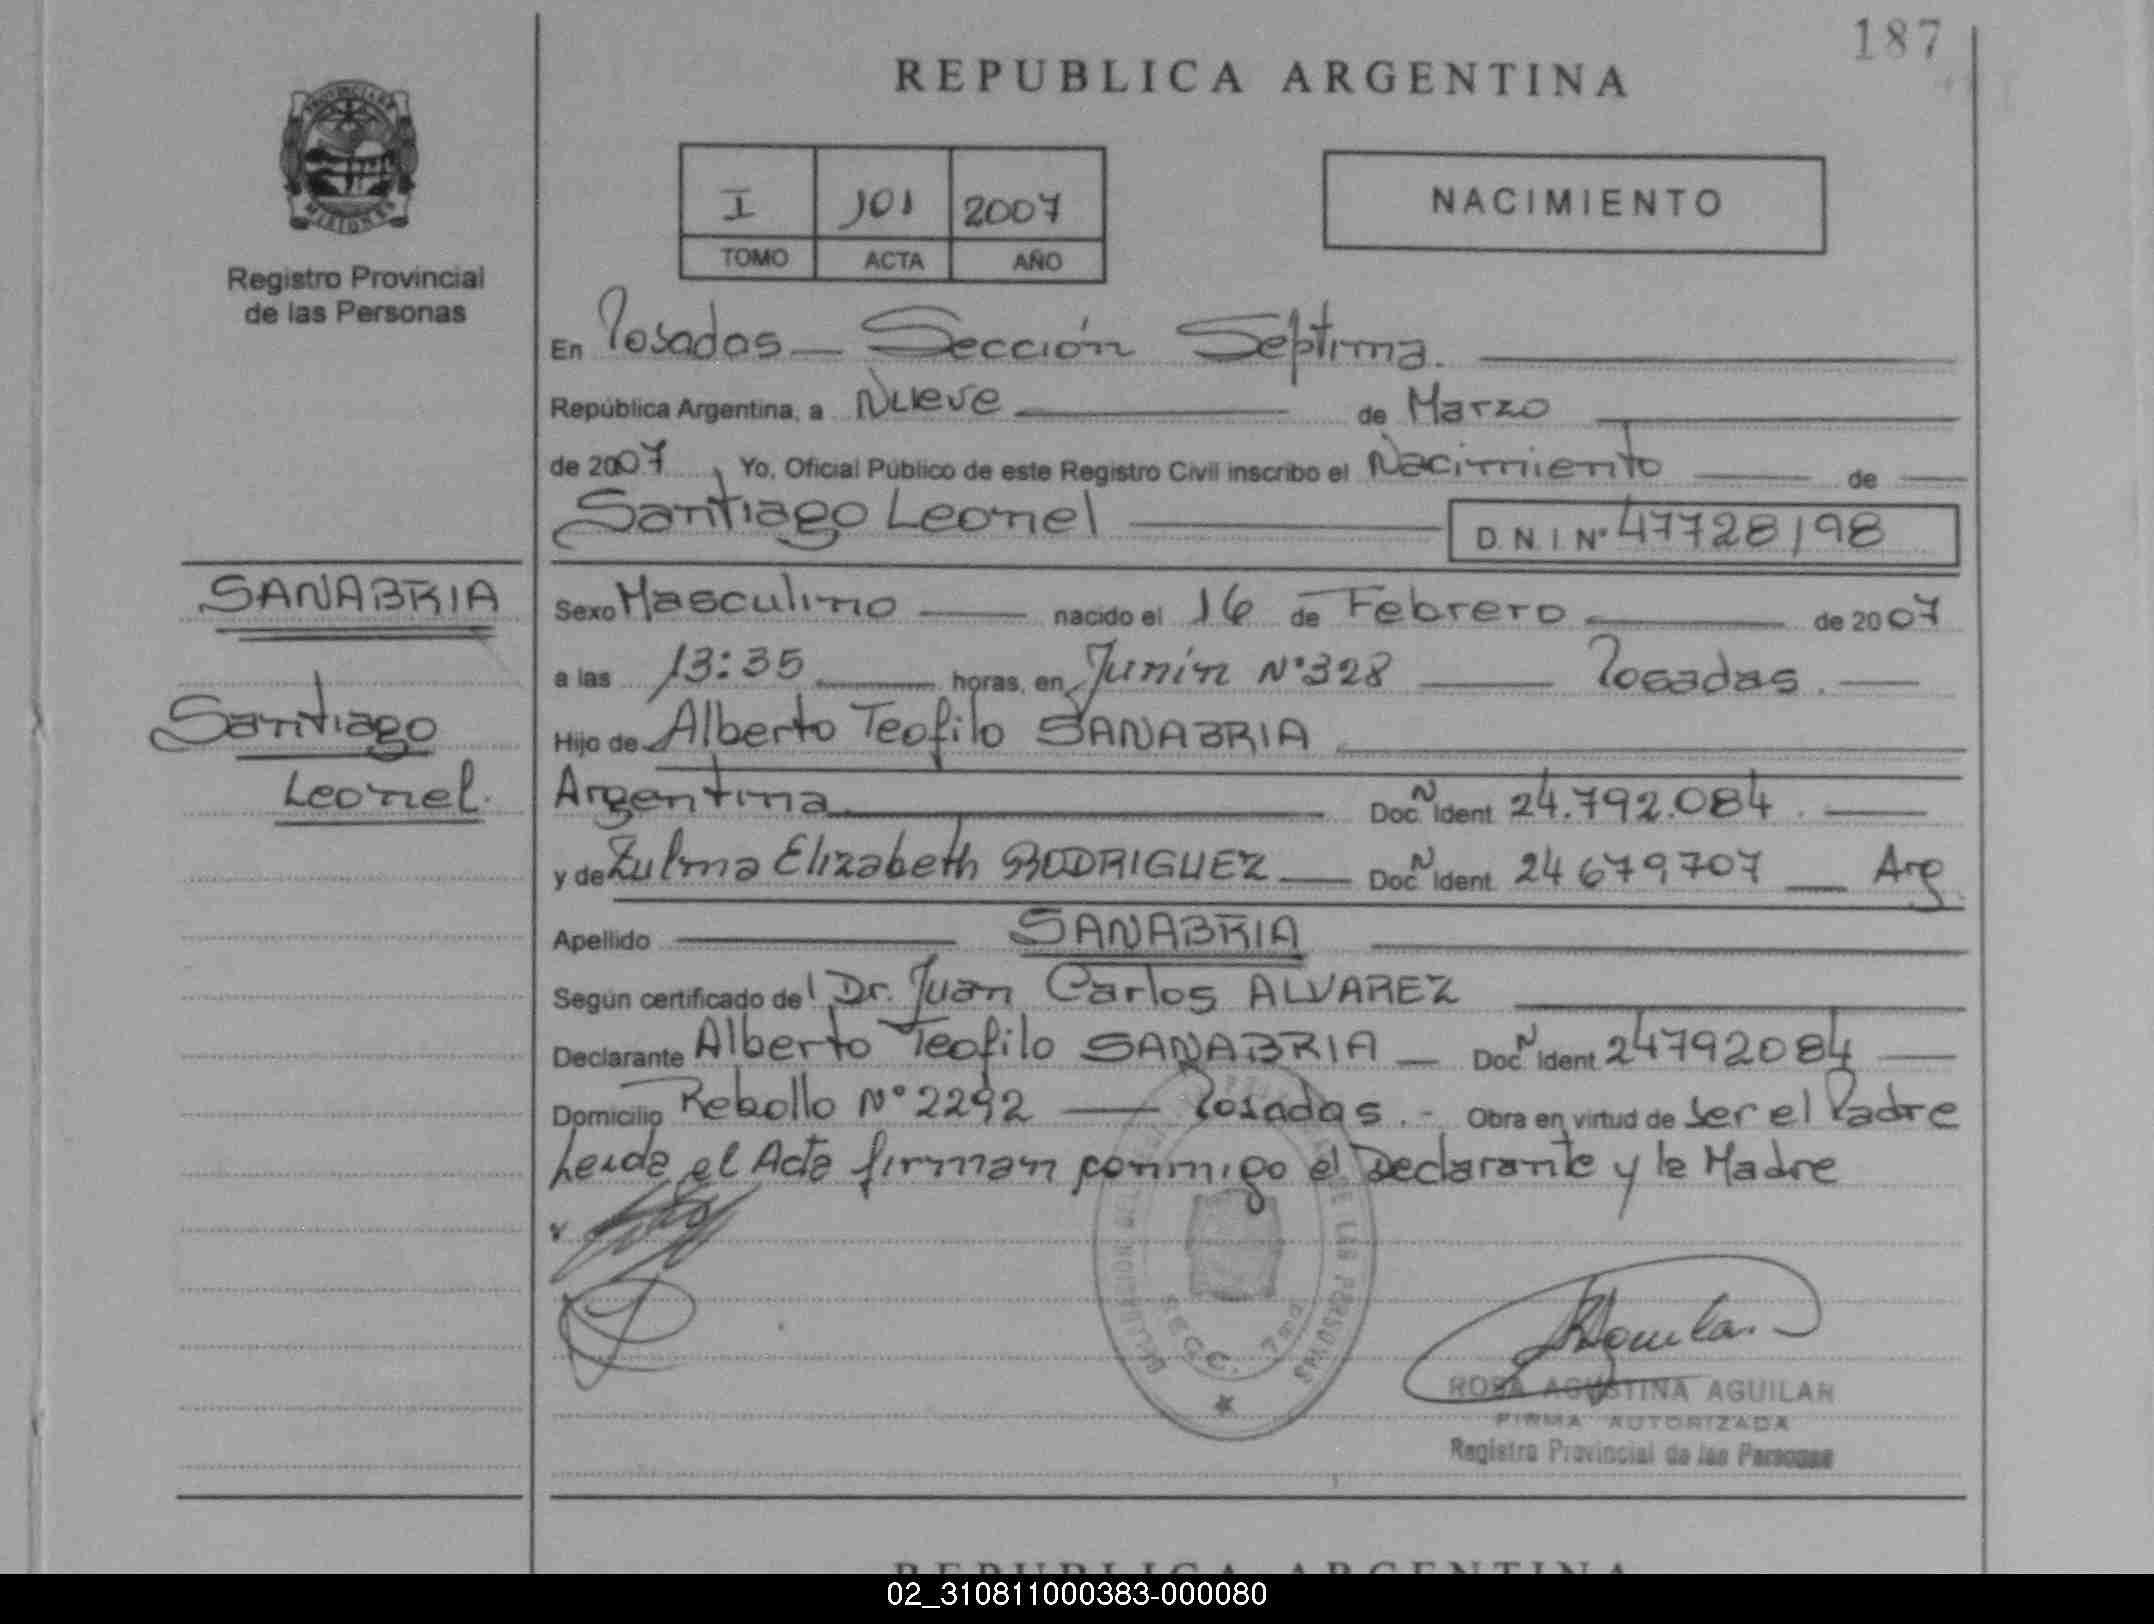 187
REPUBLICA ARGENTINA
MISIONES
Registro Provincial
de las Personas
I 101 2007
TOMO ACTA AÑO
NACIMIENTO
En Posadas — Sección Septima.
República Argentina, a Nueve de Marzo
de 2007, Yo, Oficial Público de este Registro Civil inscribo el Nacimiento de
Santiago Leonel D.N.I. Nº 47728198
SANABRIA
Santiago
Leonel.
Sexo Masculino nacido el 16 de Febrero de 2007
a las 13:35 horas, en Junín Nº 328 Posadas.
Hijo de Alberto Teofilo SANABRIA
Argentina Doc. N Ident 24.792.084.
y de Zulma Elizabeth RODRIGUEZ Doc. N Ident 24679707 Arg.
Apellido SANABRIA
Según certificado del Dr. Juan Carlos ALVAREZ
Declarante Alberto Teofilo SANABRIA Doc. N Ident 24792084
Domicilio Rebollo Nº 2292 Posadas. - Obra en virtud de ser el Padre
Leida el Acta firman conmigo el Declarante y la Madre
SECC. 7ma
ROSA AGUSTINA AGUILAR
FIRMA AUTORIZADA
Registro Provincial de las Personas
REPUBLICA ARGENTINA
02_310811000383-000080